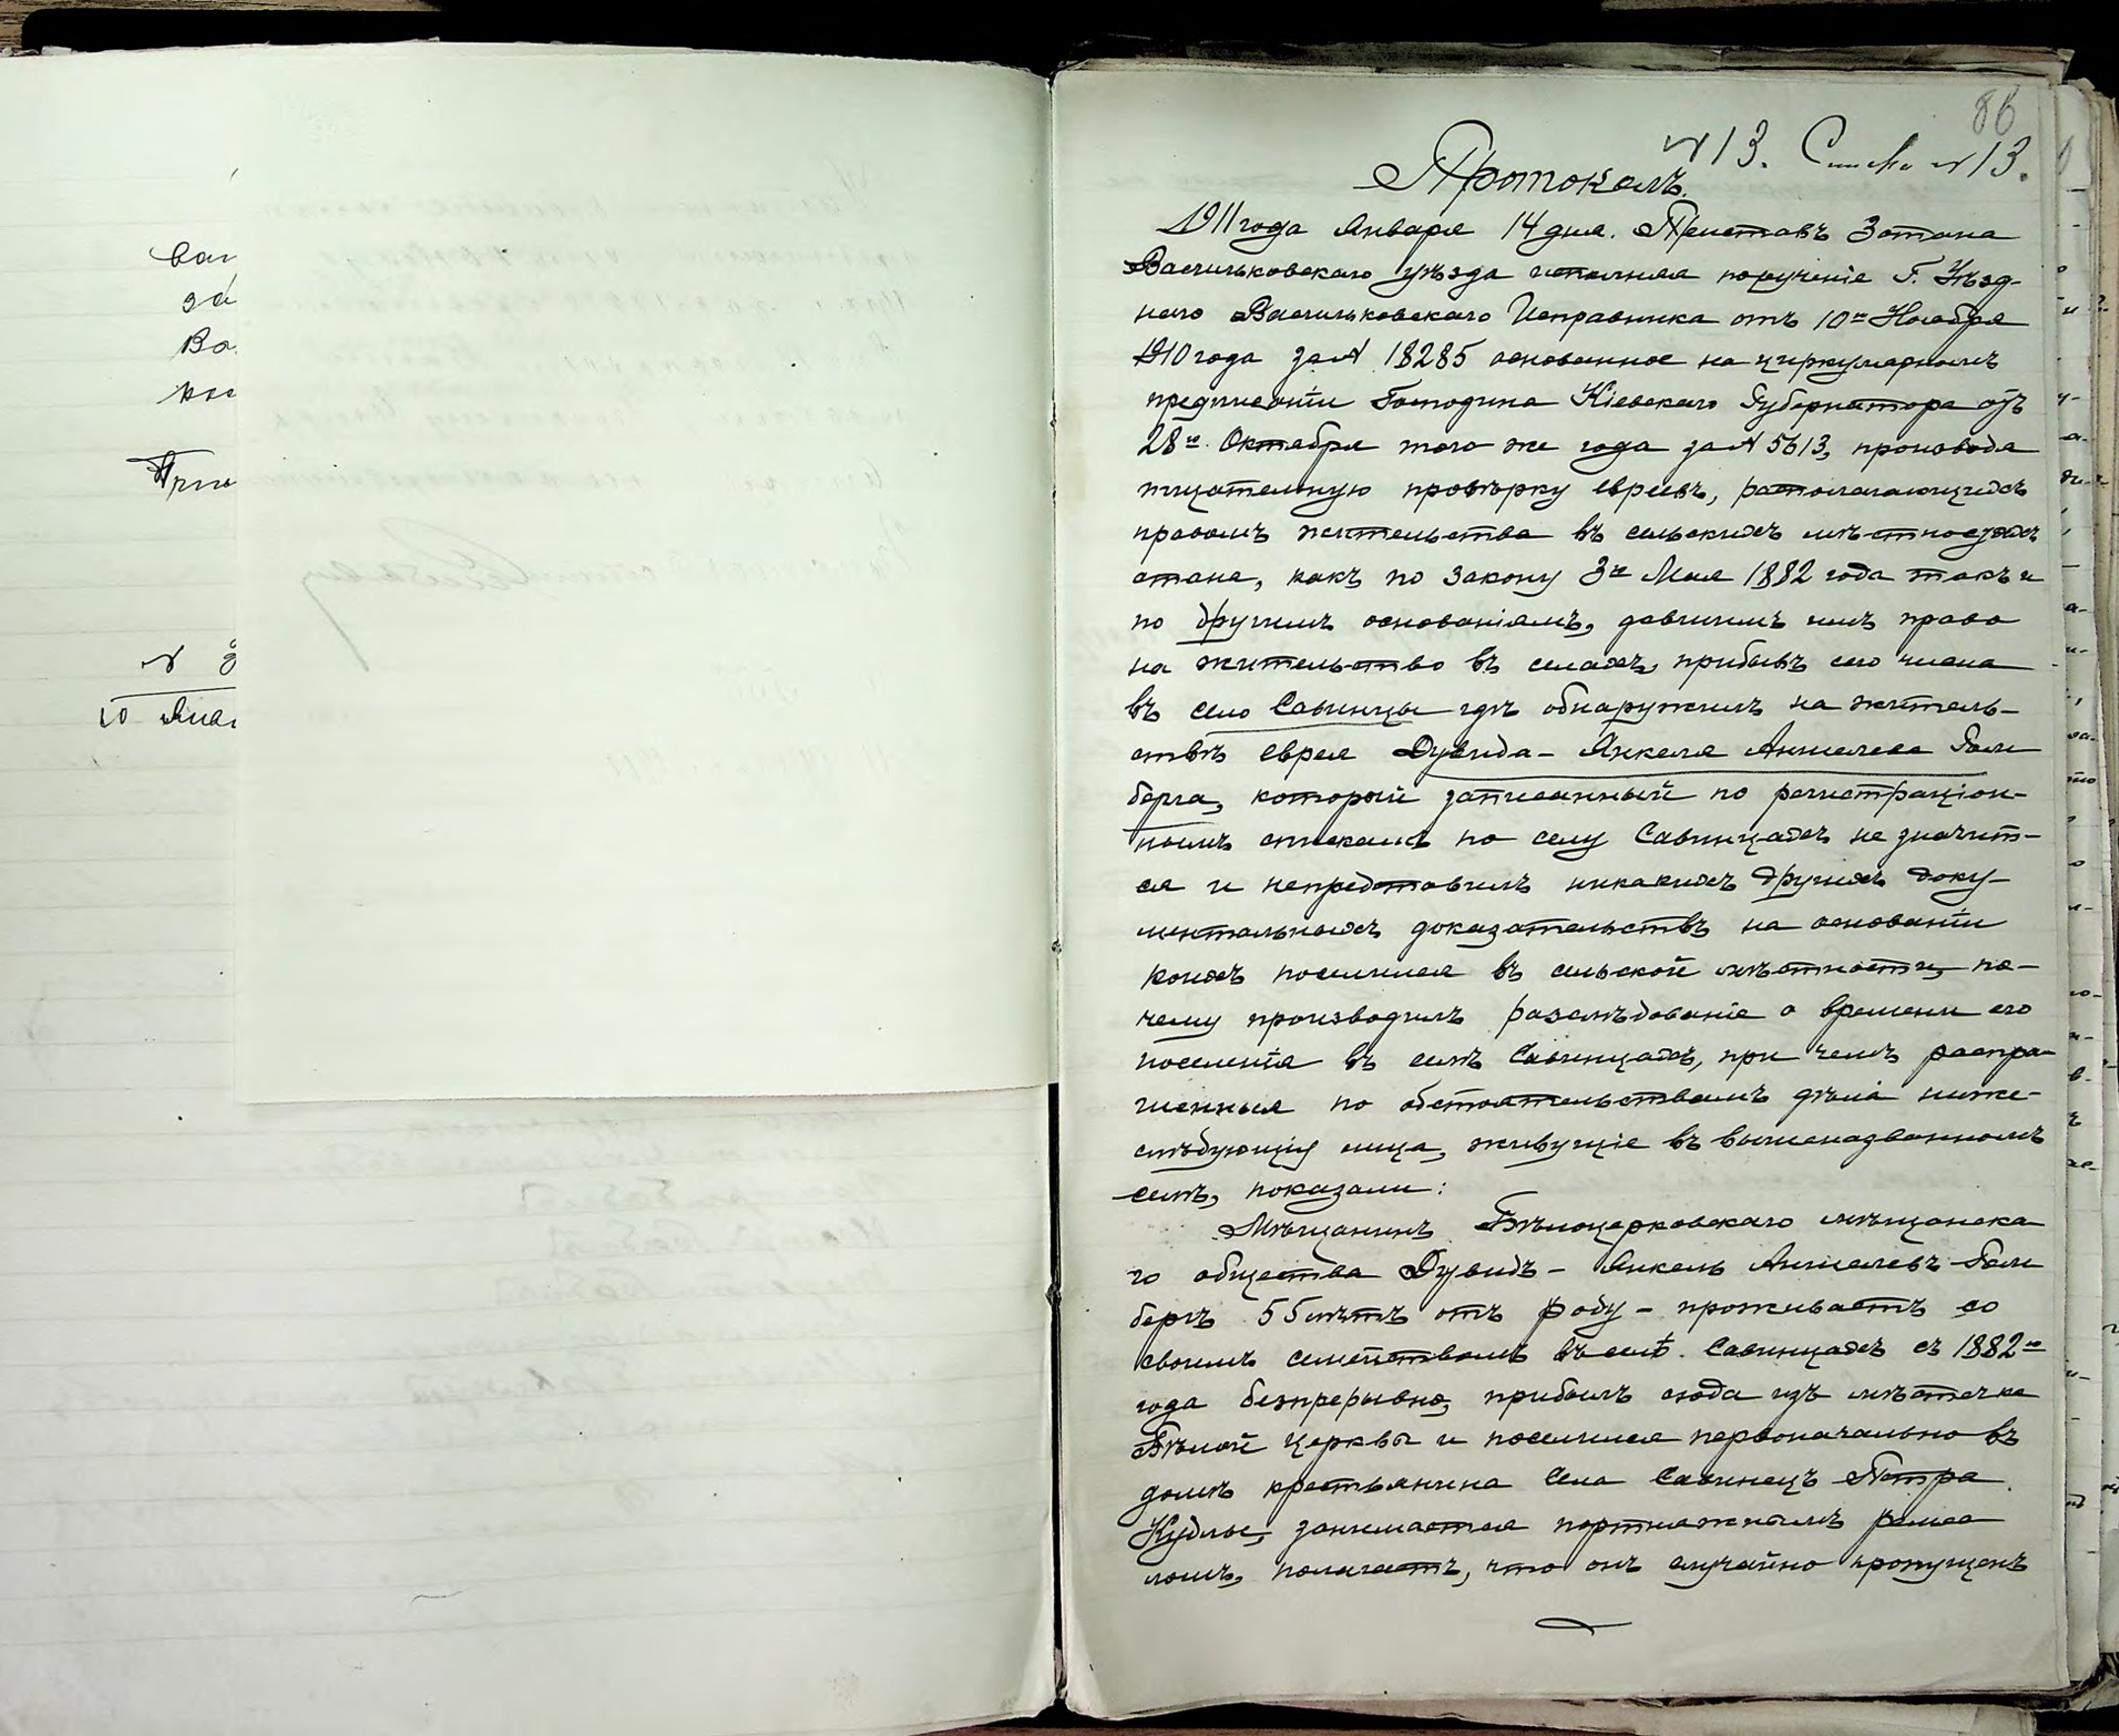 86
№ 13. Списка № 13.
Протоколъ.
1911 года Января 14 дня. Приставъ 3 стана
Васильковскаго уѣзда исполняя порученіе Г. Уѣзд-
наго Васильковскаго Исправника отъ 10го Ноября
1910 года за № 18285 основанное на циркулярномъ
предписаніи Господина Кіевскаго Губернатора отъ
28го Октября того же года за № 5613, производя
тщательную провѣрку евреевъ, располагающихъ
правомъ жительства въ сельскихъ мѣстностяхъ
стана, какъ по закону 3го Мая 1882 года такъ и
по другимъ основаніямъ, давшимъ имъ право
на жительство въ селахъ, прибывъ сего числа
въ село Савинцы гдѣ обнаружилъ на житель-
ствѣ еврея Дувида-Янкеля Аншелева Гол
берга, который записанный по регистраціон-
нымъ спискамъ по селу Савинцахъ не значит-
ся и непредставилъ никакихъ другихъ доку-
ментальныхъ доказательствъ на основаніи
коихъ поселился въ сельской мѣстности, по-
чему производилъ разслѣдованіе о времени его
поселенія въ селѣ Савинцахъ, при чемъ распро-
шенныя по обстоятельствамъ дѣла ниже-
слѣдующія лица, живущіе въ вышеназванномъ
селѣ, показали:
Мѣщанинъ Бѣлоцерковскаго мѣщанска
го общества Дувидъ-Янкель Аншелевъ Гол
бергъ 55 лѣтъ отъ роду - проживаетъ со
своимъ семействомъ въ селѣ Савинцахъ съ 1882го
года безпрерывно, прибылъ сюда изъ мѣстечка
Бѣлой церкви и поселился первоначально въ
домѣ крестьянина села Савинецъ Петра
занимается портняжнымъ ремес
ломъ, полагаетъ, что онъ случайно пропущенъ